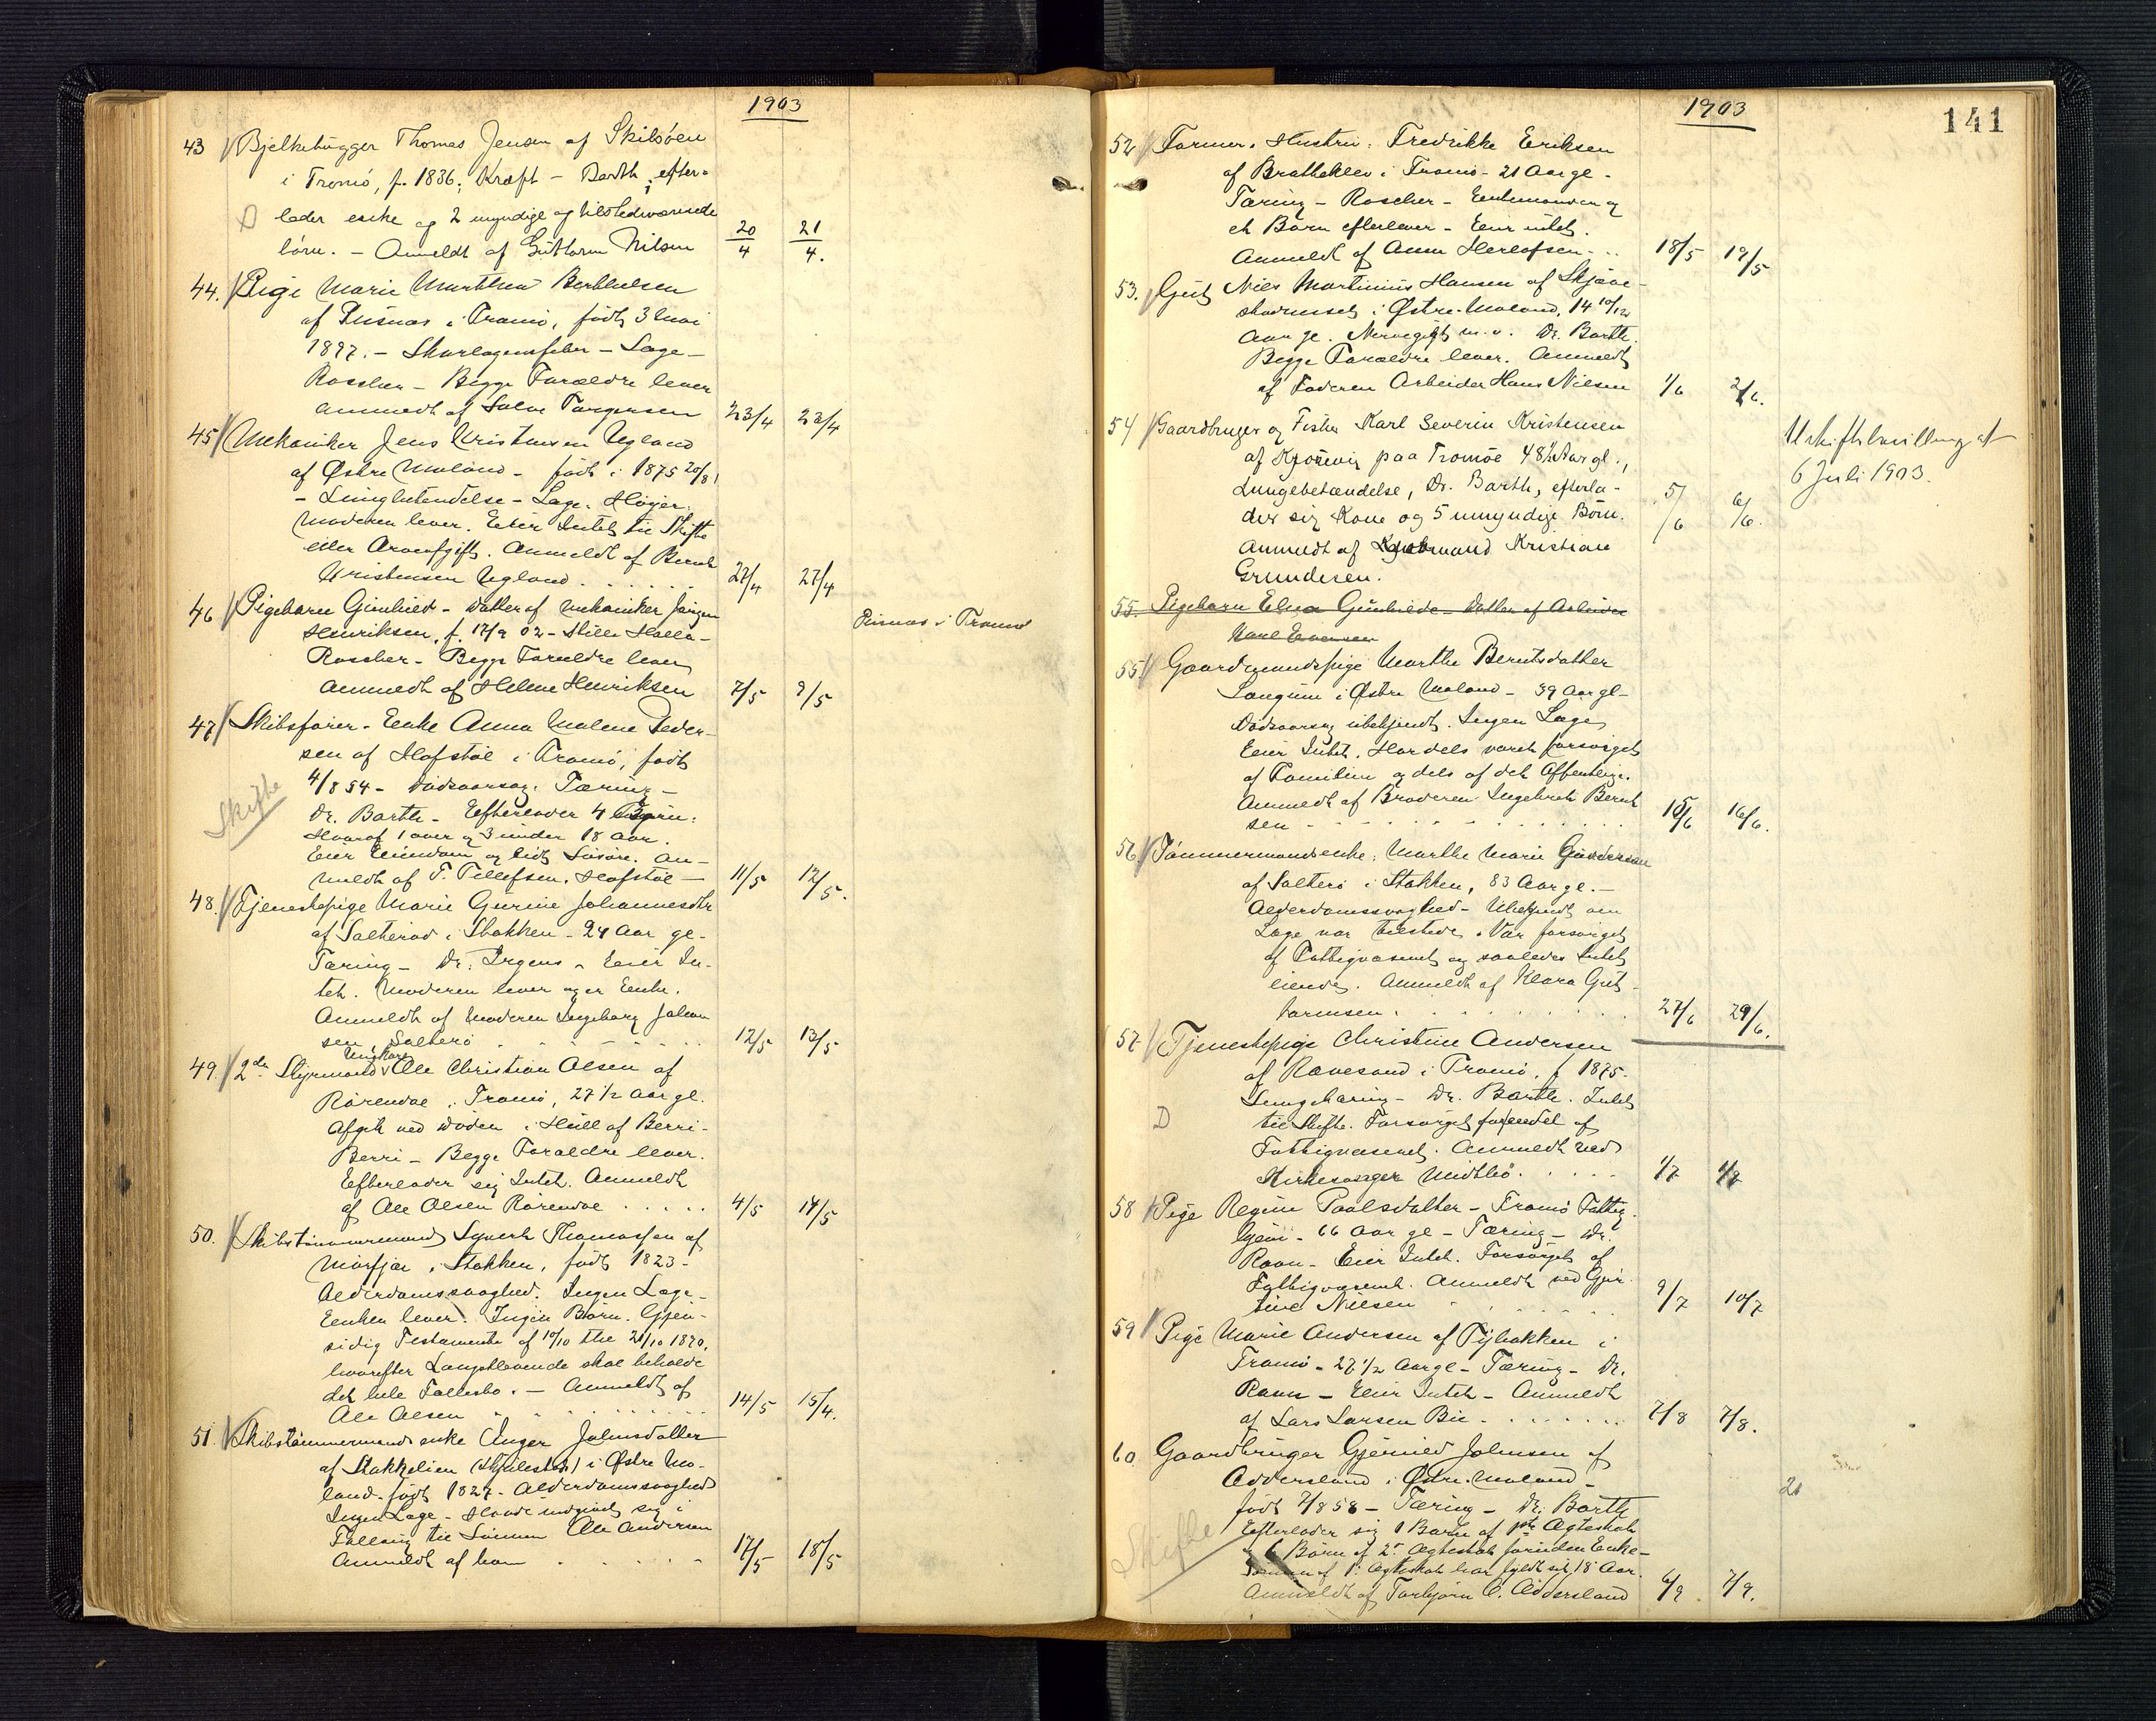 1903
43 Bjelkehugger Thomas Jensen af Skilsøen
i Tromø, f. 1836; Kræft - Barth; efter-
D lader enke og 2 myndige og tilstedeværende
börn. - Anmeldt af Guttorm Nilsen 20/4 21/4.
44. Pige Marie Marthea Berthelsen
af Pusnæs i Tromö, födt 3 Mai
1897. - Skarlagensfeber - Læge -
Roscher - Begge Forældre lever
Anmeldt af Salve Torgersen 23/4 23/4
45 Mekaniker Jens Kristensen Ugland
af Østre Moland - födt i 1875 20/8
- Lungebetendelse - Læge. Høyer.
Moderen lever. Eier Intet til Skifte
eller Arveafgift. Anmeldt af Bernt
Kristensen Ugland . . . . . 27/4 27/4
46 Pigebarn Gunhild - datter af Mekaniker Jörgen
Henriksen, f. 17/9 02 - Stille Halla -
Roscher - Begge Forældre lever
Anmeldt af Helene Henriksen 7/5 9/5
Pusnæs i Tromø
47 Skibsförer - Enke Anna Malene Peder-
sen af Hofstöl i Tromö, födt
4/8 54 - Dödsaarsag. Tæring -
Skifte
Dr. Barth - Efterlader 4 Börn:
Hvoraf 1 over og 3 under 18 Aar.
Eier Eiendom og lidt Lösöre. An-
meldt af T. Tellefsen, Hofstöl - 11/5 12/5.
48. Tjenestepige Marie Gurine Johannesdtr
af Salterød i Stokken - 24 Aar gl.
Tæring - Dr. Irgens - Eeier In-
tet. Moderen lever og er Enke.
Anmeldt af Moderen Ingeborg Johan
sen, Salterö . . . . . 12/5 13/5
Ungkarl
49. 2den Styrmand Ole Christian Olsen af
Rörendal i Tromö, 27 1/2 Aar gl.
Afgik ved Döden i Hull af Berri-
Berri - Begge Forældre lever.
Efterlader sig Intet. Anmeldt
af Ole Olsen Rörendal . . . . . 4/5 14/5
50. Skibstömmermand Syvert Thomassen af
Mörfjær i Stokken, födt 1823 -
Alderdomssvaghed. Ingen Læge -
Eenken lever. Ingen Börn. Gjen-
sidig Testamente af 10/10 thl 21/10 1890,
hvorefter Længstlevende skal beholde
det hele Fællesbo. - Anmeldt af
Ole Olsen . . . . . 14/5 15/4.
51. Skibstömmermands enke Anger Johnsdatter
af Stokkelien (Skjulestad) i Østre Mo-
land - födt 1827 - Alderdomssvaghed
Ingen Læge - Havde indgivet sig i
Fölloug til Sönnen Ole Andersen
Anmeldt af ham . . . . . 17/5 18/5
1903
141
52 Farmer. Hustru: Fredrikke Eriksen
af Bratteklev i Tromö - 21 Aar gl -
Tæring - Roscher - Enkemanden og
et Barn efterlever - Eeier intet.
Anmeldt af Anna Herlofsen . . 18/5 19/5
53. Gut Niels Martinius Hansen af Skjæve-
i Østre-Moland, 14 10/12
Aar gl. m.v. Dr. Barth.
Begge Forældre lever. Anmeldt
af Faderen Arbeider Hans Nilsen 1/6 2/6.
54 Gaardbruger og Fisker Karl Severin Kristensen
af paa Tromöe 48 1/2 Aar gl.,
Lungebetændelse, Dr. Barth, efterla-
der sig Kone og 5 umyndige Börn.
Anmeldt af Kristian
Grundesen. 5/6 6/6.
Uskiftebevilling af
6 Juli 1903.
55. Pigebarn Elna Gunhilde - Datter af Arbeider
Karl Evensen
55 Gaardmandspige Marthe Berntsdatter
Longum i Østre Moland - 39 Aar gl -
Dödsaarsag ubekjendt. Ingen Læge
Eeier Intet. Har dels været forsörget
af Familien og dels af det Offentlige.
Anmeldt af Broderen Ingebret Bernt
sen . . . . . 15/6 16/6.
56 Tömmermandsenke: Marthe Marie Gundersen
af Salterö i Stokken, 83 Aar gl. -
Alderdomssvaghed - Ubekjendt om
Læge var tilstede. Var forsörget
af Fattigvæsenet og saaledes Intet
eiende. Anmeldt af Klara Gut-
tormsen . . . . . 27/6 29/6.
57 Tjenestepige Christine Andersen
af Ravesand i Tromö, f 1875.
Lungetæring - Dr. Barth. Intet
D til Skifte. Forsörget forendel af
Fattigvæsenet. Anmeldt ved
Kirkesanger Midtbö . . . . 1/7 4/7
58 Pige Regine Paalsdatter - Tromö Fattig-
66 Aar gl - Tæring - Dr.
Ravn - Eier Intet. Forsörget af
Fattigvæsenet. Anmeldt ved Gjur-
tine Nielsen . . . . . 9/7 10/7
59 Pige Marie Andersen af Tybakken i
Tromö - 27 1/2 Aar gl - Tæring - Dr.
Ravn - Eier Intet - Anmeldt
af Lars Larsen Bie . . . . . 7/8 7/8.
60 Gaardbruger Gjermund Johnsen af
Addersland i Østre-Moland -
20
födt 7/8 58 - Tæring - Dr. Barth
Skifte
Efterlader sig 1 Barn af 1ste Ægteskab
og 6 Börn af 2' Ægteskab foruden Enke -
Sönnen af 1. Ægteskab har fyldt sit 18 Aar.
Anmeldt af Torbjörn O. Addersland 6/9 7/9.